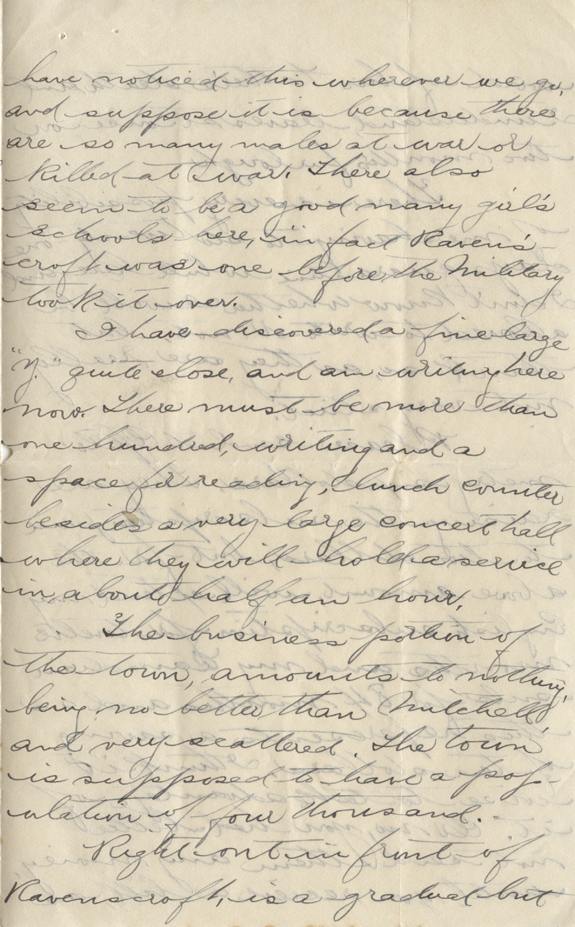 have noticed this wherever we go,
and suppose it is because there
are so many males at war or
killed at war. There also
seem to be a good many girl's
schools here, in fact Ravens-
croft was one before the Military
took it over.
I have discovered a fine large
"Y." quite close, and am writing here
now. There must be more than
one hundred, writing and a
space for reading, lunch counter
besides a very large concert hall
where they will hold a service
in about half an hour.
The business portion of
the town, amounts to nothing,
being no better than Mitchell
and very scattered. The town
is supposed to have a pop-
ulation of four thousand.
Right out in front of
Ravenscroft, is a gradual but